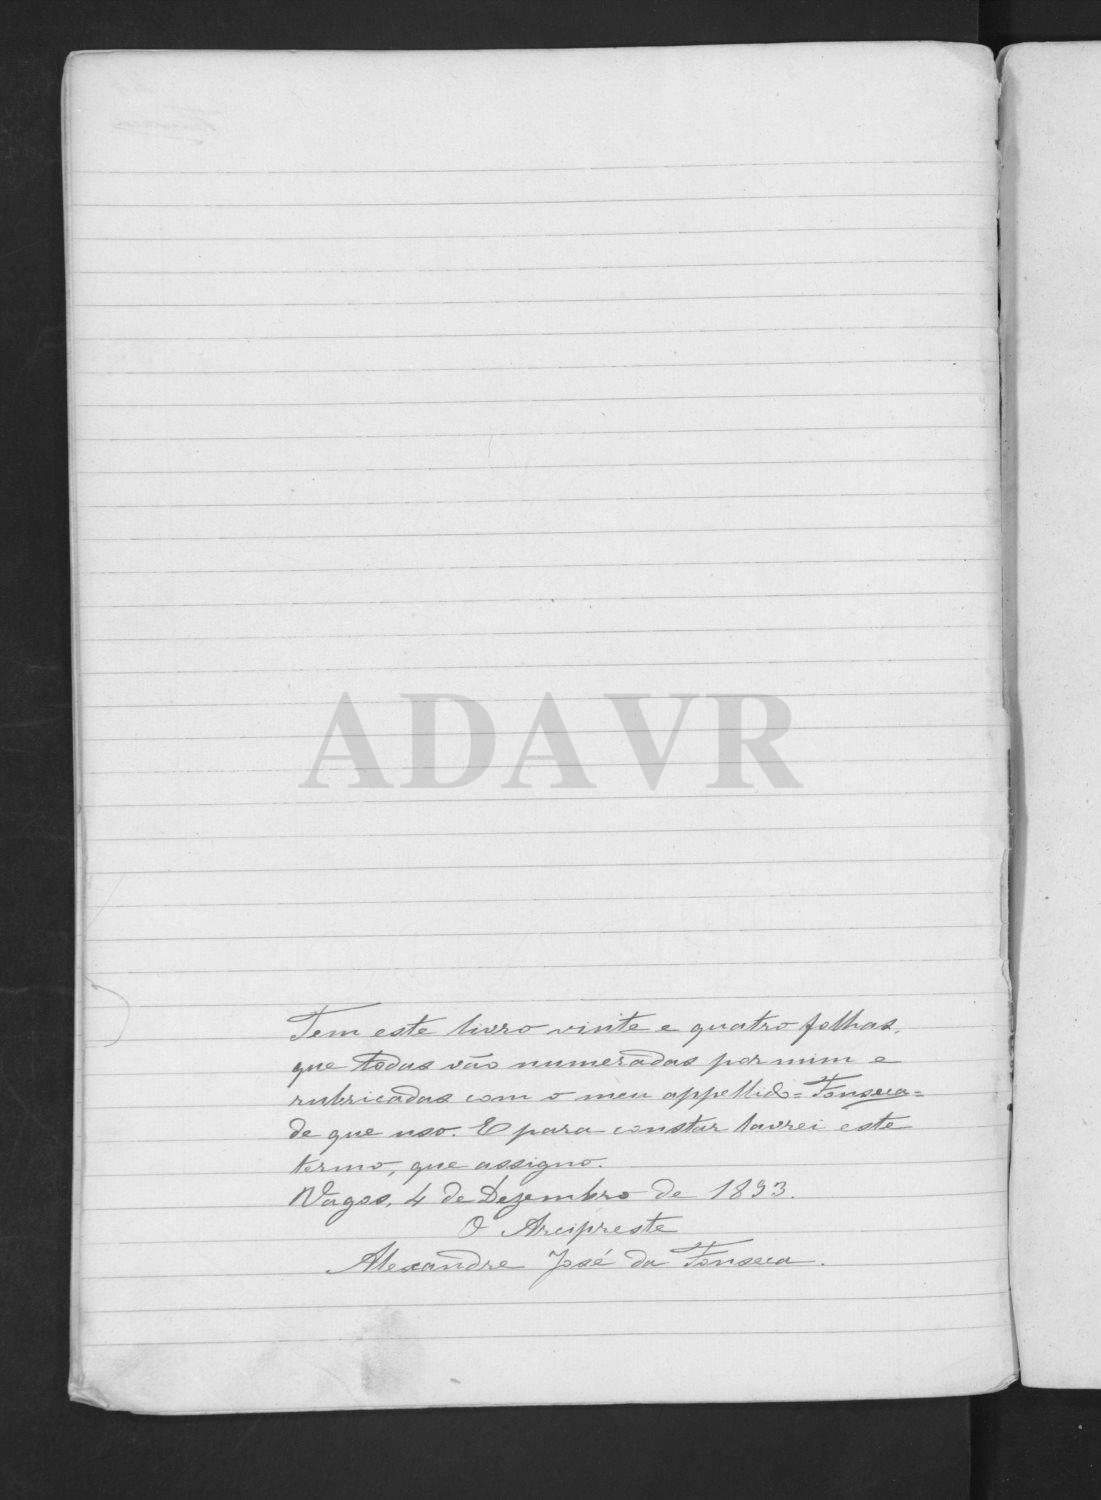 ADAVR
Tem este livro vinte e quatro folhas,
que todas vão numeradas por mim e
rubricadas com o meu appellido = Fonseca =
de que uso. E para constar lavrei este
termo, que assigno.
Vagos, 4 de Dezembro de 1893.
O Arcipreste
Alexandre José da Fonseca.